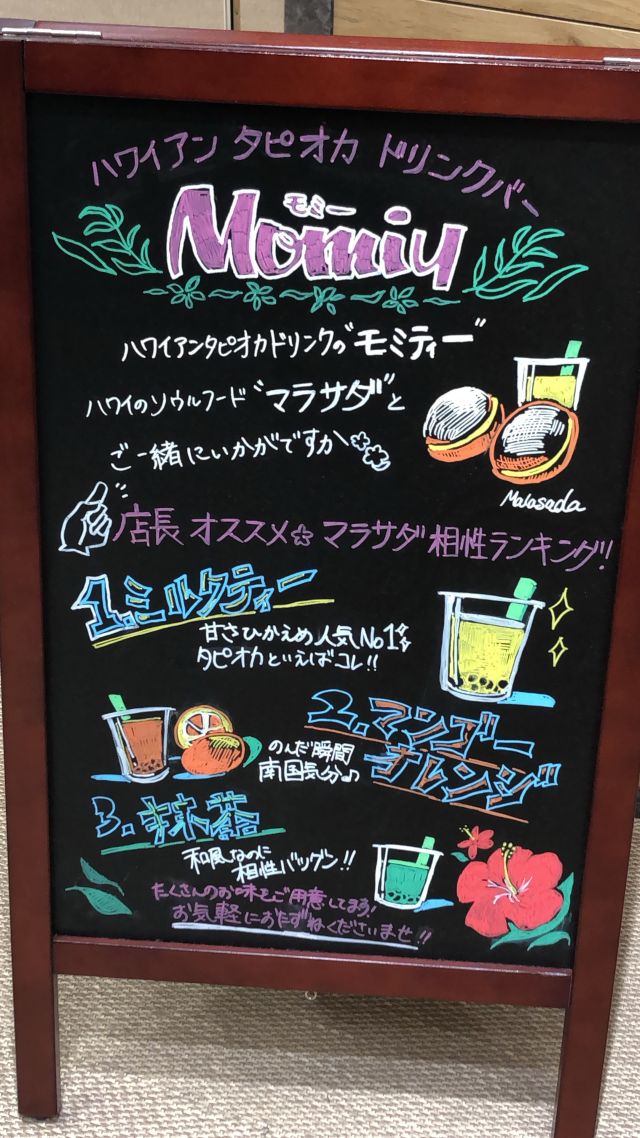 ハワイアン タピオカ ドリンクバー
モミー
Momiy
ハワイアンタピオカドリンクの"モミティー"
ハワイのソウルフード"マラサダ"と
ご一緒にいかがですか
Malasada
店長オススメ マラサダ相性ランキング!
1.ミルクティー
甘さひかえめ人気No1
タピオカといえばコレ!!
2.マンゴー
オレンジ
のんだ瞬間
南国気分♪
3.抹茶
和風なのに
相性バツグン!!
たくさんのお味をご用意してます!
お気軽におたずねくださいませ!!